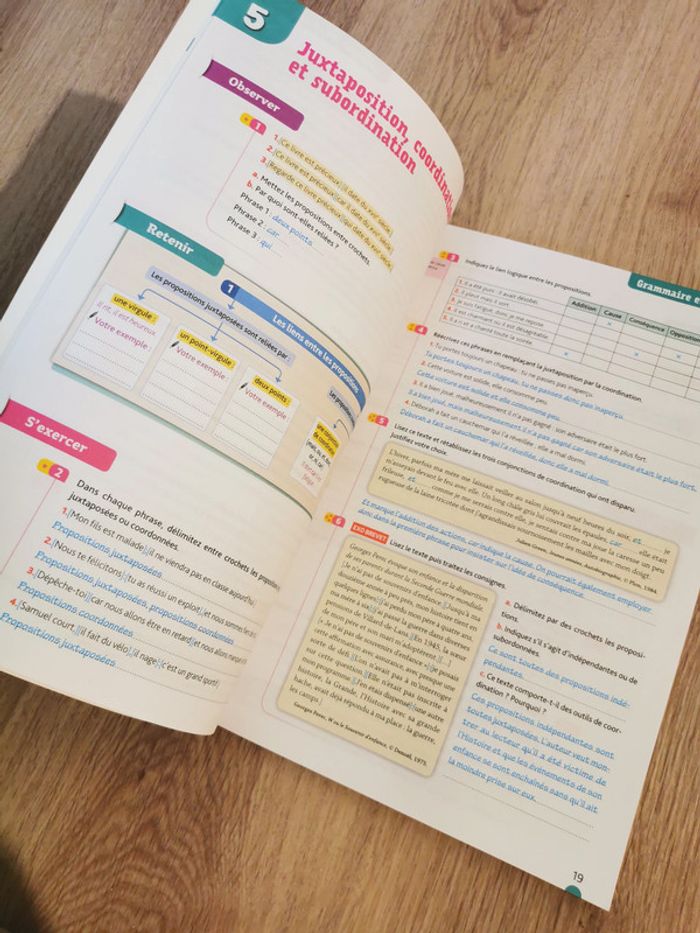 5
Juxtaposition, coordination
et subordination
Observer
1
1. [Ce livre est précieux] : [il date du XVIIe siècle].
2. [Ce livre est précieux] [car il date du XVIIe siècle].
3. [Regarde ce livre précieux] [qui date du XVIIe siècle].
a. Mettez les propositions entre crochets.
b. Par quoi sont-elles reliées ?
Phrase 1 : deux points
Phrase 2 : car
Phrase 3 : qui
Retenir
1 Les liens entre les propositions
Les propositions juxtaposées sont reliées par :
une virgule :
Il rit, il est heureux.
Votre exemple :
un point-virgule :
Votre exemple :
deux points :
Votre exemple :
Les propositions
une conjonction
de coordination
(mais, ou, et, donc,
or, ni, car)
S'exercer
2
Dans chaque phrase, délimitez entre crochets les propositions
juxtaposées ou coordonnées.
1. [Mon fils est malade] ; [il ne viendra pas en classe aujourd'hui]
Propositions juxtaposées
2. [Nous te félicitons] : [tu as réussi un exploit] [et nous sommes
Propositions juxtaposées, propositions coordonnées
3. [Dépêche-toi] [car nous allons être en retard] [et nous allons manquer
Propositions coordonnées
4. [Samuel court,] [il fait du vélo], [il nage] : [c'est un grand sportif]
Propositions juxtaposées
Grammaire
3
Indiquez le lien logique entre les propositions.
Addition Cause Conséquence Opposition
1. Il a été puni : il avait désobéi.
2. Il pleut mais il sort.
3. Je suis fatigué, donc je me repose.
4. Il est charmant ou il est désagréable.
5. Il a ri et a chanté toute la soirée.
4
Réécrivez ces phrases en remplaçant la juxtaposition par la coordination.
1. Tu portes toujours un chapeau : tu ne passes pas inaperçu.
Tu portes toujours un chapeau, tu ne passes donc pas inaperçu.
2. Cette voiture est solide, elle consomme peu.
Cette voiture est solide et elle consomme peu.
3. Il a bien joué, malheureusement il n'a pas gagné : son adversaire était le plus fort.
Il a bien joué, mais malheureusement il n'a pas gagné car son adversaire était le plus fort.
4. Déborah a fait un cauchemar qui l'a réveillée : elle a mal dormi.
Déborah a fait un cauchemar qui l'a réveillée, donc elle a mal dormi.
5
Lisez ce texte et rétablissez les trois conjonctions de coordination qui ont disparu.
Justifiez votre choix.
L'hiver, parfois ma mère me laissait veiller au salon jusqu'à neuf heures du soir, et je
m'asseyais devant le feu avec elle. Un long châle gris lui couvrait les épaules, car elle était
frileuse, et comme je me serrais contre elle, je sentais contre ma joue la caresse un peu
rugueuse de la laine tricotée dont j'agrandissais sournoisement les mailles avec mon doigt.
Julien Green, Jeunes années, Autobiographie, © Plon, 1984
Et marque l'addition des actions, car indique la cause. On pourrait également employer
donc dans la première phrase pour insister sur l'idée de conséquence.
6
EXO BREVET
Lisez le texte puis traitez les consignes.
Georges Perec évoque son enfance et la disparition
de ses parents durant la Seconde Guerre mondiale.
[Je n'ai pas de souvenirs d'enfance.] [Jusqu'à ma
douzième année à peu près, mon histoire tient en
quelques lignes] : [j'ai perdu mon père à quatre ans,
ma mère à six] ; [j'ai passé la guerre dans diverses
pensions de Villard-de-Lans.] [En 1945, la sœur
de mon père et son mari m'adoptèrent.] [...]
[« Je n'ai pas de souvenirs d'enfance »] : [je posais
cette affirmation avec assurance, avec presque une
sorte de défi.] [L'on n'avait pas à m'interroger
sur cette question.] [Elle n'était pas inscrite à
mon programme.] [J'en étais dispensé] : [une autre
histoire, la Grande, l'Histoire avec sa grande
hache, avait déjà répondu à ma place : la guerre,
les camps.]
Georges Perec, W ou le Souvenir d'enfance, © Denoël, 1975.
a. Délimitez par des crochets les proposi-
tions.
b. Indiquez s'il s'agit d'indépendantes ou de
subordonnées.
Ce sont toutes des propositions indé-
pendantes.
c. Ce texte comporte-t-il des outils de coor-
dination ? Pourquoi ?
Ces propositions indépendantes sont
toutes juxtaposées. L'auteur veut mon-
trer au lecteur qu'il a été victime de
l'Histoire et que les événements de son
enfance se sont enchaînés sans qu'il ait
la moindre prise sur eux.
19